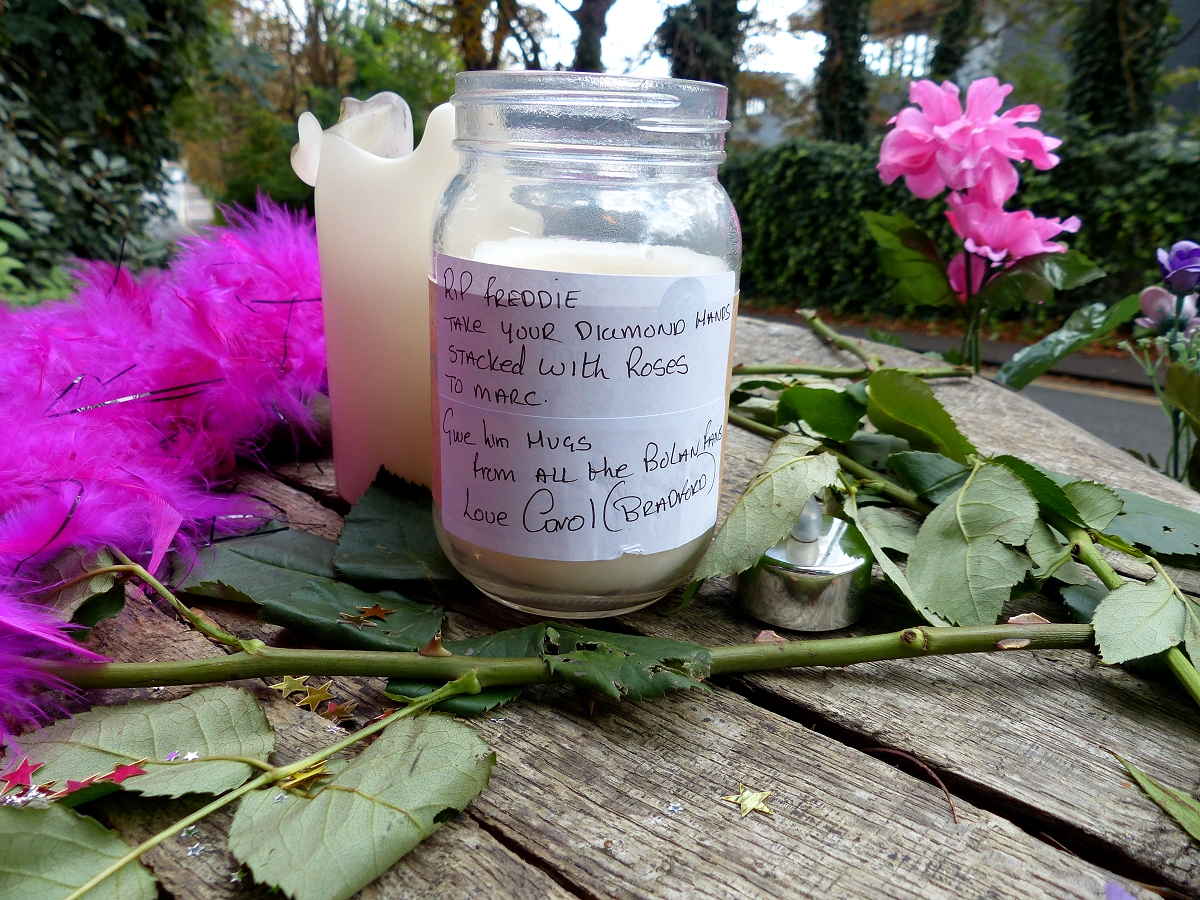 RIP FREDDIE
TAKE YOUR DIAMOND HANDS
STACKED WITH ROSES
TO MARC.
Give him HUGS
from ALL the BOLAN fans
Love Carol (BRADFORD)